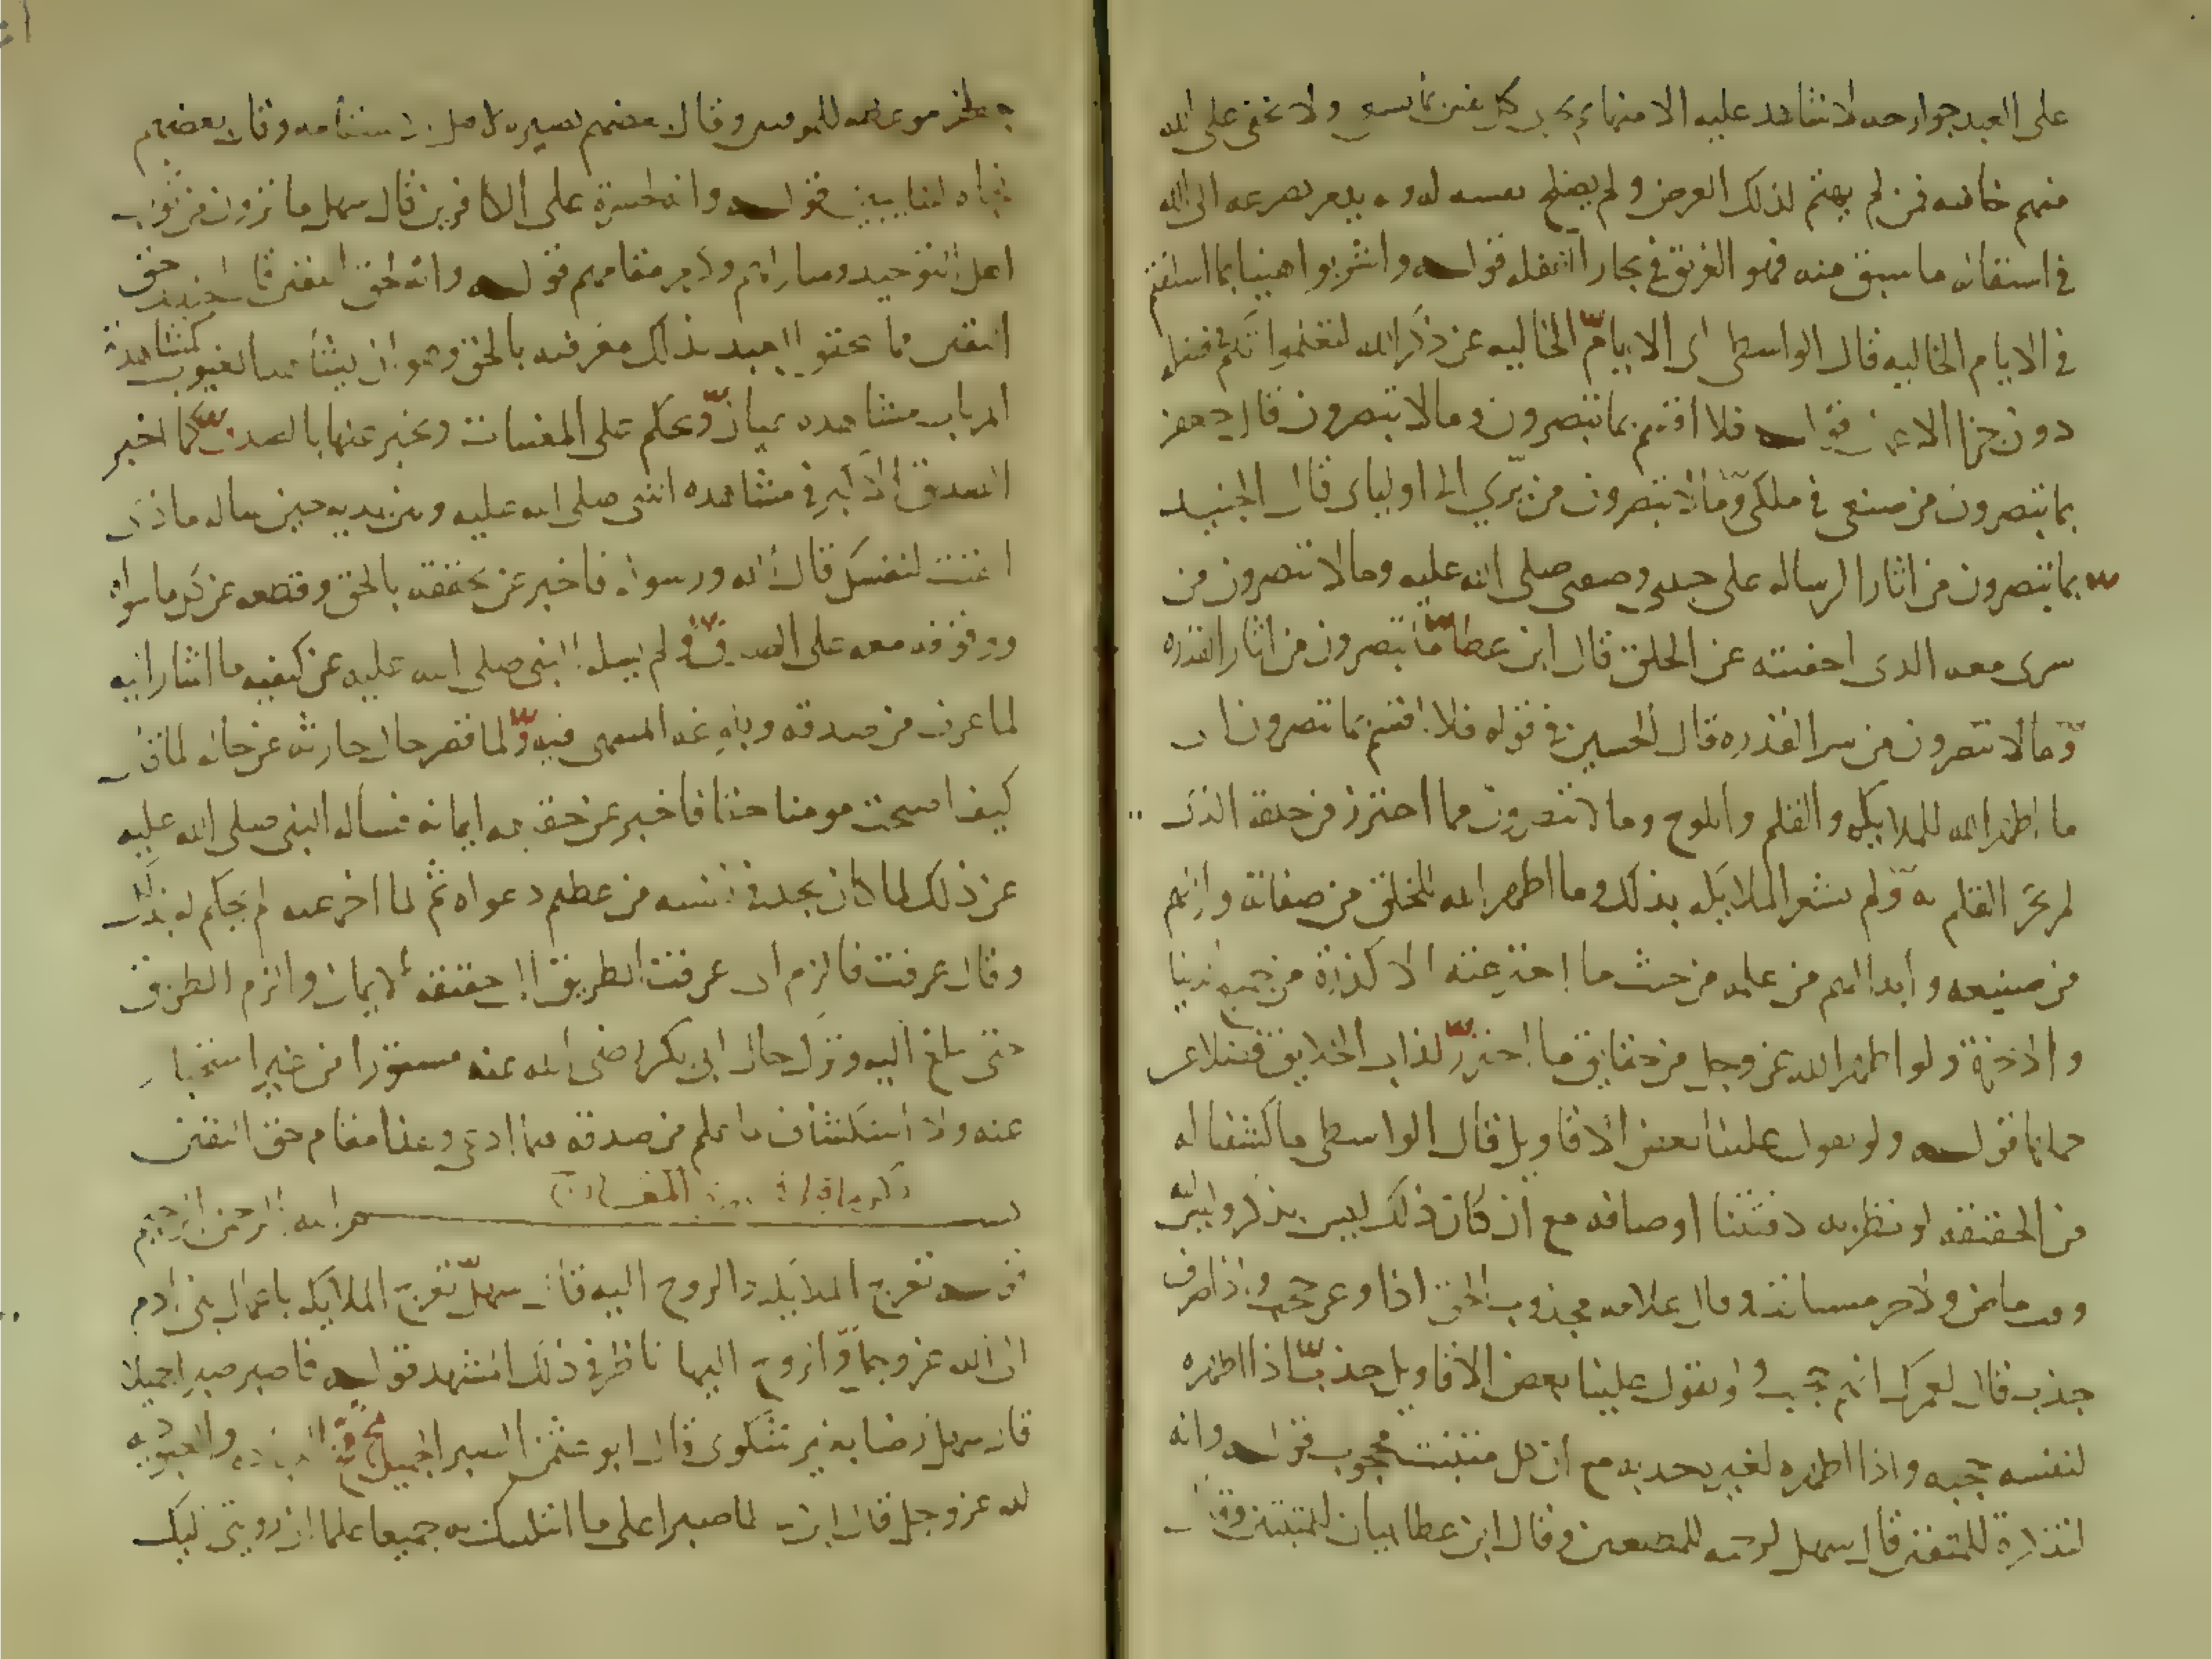 على العبد جوارحه لا تشاهد عليه الا منها كل نفس بما ولا تخفى على الله
منهم خافيه فمن لم يهتم لذلك العرض ولم يصلح نفسه له ويديم تضرعه الى الله
في استقاله ما سبق منه فهو الغريق في بحار الغفله قوله واشربوا هنيا بما اسلفتم
في الايام الخاليه قال الواسطى اى الايام الخاليه عن ذكر الله لتعلموا انكم بفضل
دون جزا الاعمال قوله فلا اقسم بما تبصرون وما لا تبصرون قال جعفر
بما تبصرون من صنعى في ملكى وما لا تبصرون من برى الى اوليائى قال الجنيد
بما تبصرون من اثار الرساله على حبيبى وصفيى صلى الله عليه وما لا تبصرون من
سرى معه الذى اخفيته عن الخلق قال ابن عطا ما تبصرون من اثار القدره
وما لا تبصرون من سر القدره قال الحسين في قوله فلا اقسم بما تبصرون اى
ما اظهر الله للملايكه والقلم واللوح وما لا تبصرون مما اختزن من خلقه الذى
لم يجر القلم به ولم تشعر الملايكه بذلك وما اظهر الله للخلق من صفاته واراهم
من صنيعه وابدا لهم من علمه من حيث ما اختزن عنه الا كذرة من جميع الدنيا
والاخرة ولو اظهر الله عز وجل من حقايق ما اختزن لذاب الخلايق فضلا عن
حملها قوله ولو تقول علينا بعض الاقاويل قال الواسطى ما كشفنا له
من الحقيقه لو نظر به الى اوصافه مع ان كان ذلك ليس بذكر وليس
وقت ما من ولا حر مساتته وقال علامه مجذوب الحق اذا وعر حجب واذا صرف
جذب قال لعمرك انهم حجب ولو تقول علينا بعض الاقاويل جذب اذا اظهره
لنفسه حجبه واذا اظهره لغيره جذبه مع ان كل مثبت محجوب قوله وانه
لتذكرة للمتقين قال سهل لرحمه للمطيعين وقال ابن عطا بيان للمتقين وقال
جعفر موعظه للمومنين وقال بعضهم تبصره لاهل الاستقامه وقال بعضهم
نجاه للتايبين قوله وانه لحسرة على الكافرين قال سهل ما يرون من ثواب
اهل التوحيد ومنازلهم وكريم مقامهم قوله وانه لحق اليقين قال الجنيد حق
اليقين ما يحقق العبد بذلك معرفته بالحق وهو ان يشاهد الغيوب كمشاهدته
المرئيات مشاهده عيان ويحكم على المغيبات ويخبر عنها بالصدق كما اخبر
الصديق الاكبر في مشاهده النبى صلى الله عليه وبين يديه حين ساله ماذا
ابقيت لنفسك قال الله ورسوله فاخبر عن تحققه بالحق وقطعه عن كل ما سواه
ووقوفه معه على الصدق ولم يساله النبى صلى الله عليه عن كيفيه ما اشار اليه
لما عرف من صدقه وبلوغه المنتهى فيه ولما قصر حال حارثه عن حاله لما قال
كيف اصبحت مومنا حقا فاخبر عن حقيقه ايمانه فساله النبى صلى الله عليه
عن ذلك لما كان يجد في نفسه من عظم دعواه ثم لما اخبر عنه لم يحكم له بذلك
وقال عرفت فالزم اى عرفت الطريق الى حقيقه الايمان والزم الطريق
حتى تبلغ اليه وترك حال ابى بكر رضى الله عنه مستورا من غير استخبار
عنه ولا استكشاف لما علم من صدقه فيما ادعى وهذا مقام حق اليقين
ذكر ما قيل في سورة المعارج
بسم الله الرحمن الرحيم
قوله تعرج الملايكة والروح اليه قال سهل تعرج الملايكه باعمال بنى ادم
الى الله عز وجل والروح اليها ناظر في ذلك المشهد قوله فاصبر صبرا جميلا
قال سهل رضا بغير شكوى قال ابو عثمن الصبر الجميل والعبوديه
لله عز وجل قال ابن لما صبرا على ما ابتليتك به جميعا علما ان رويتى ليك